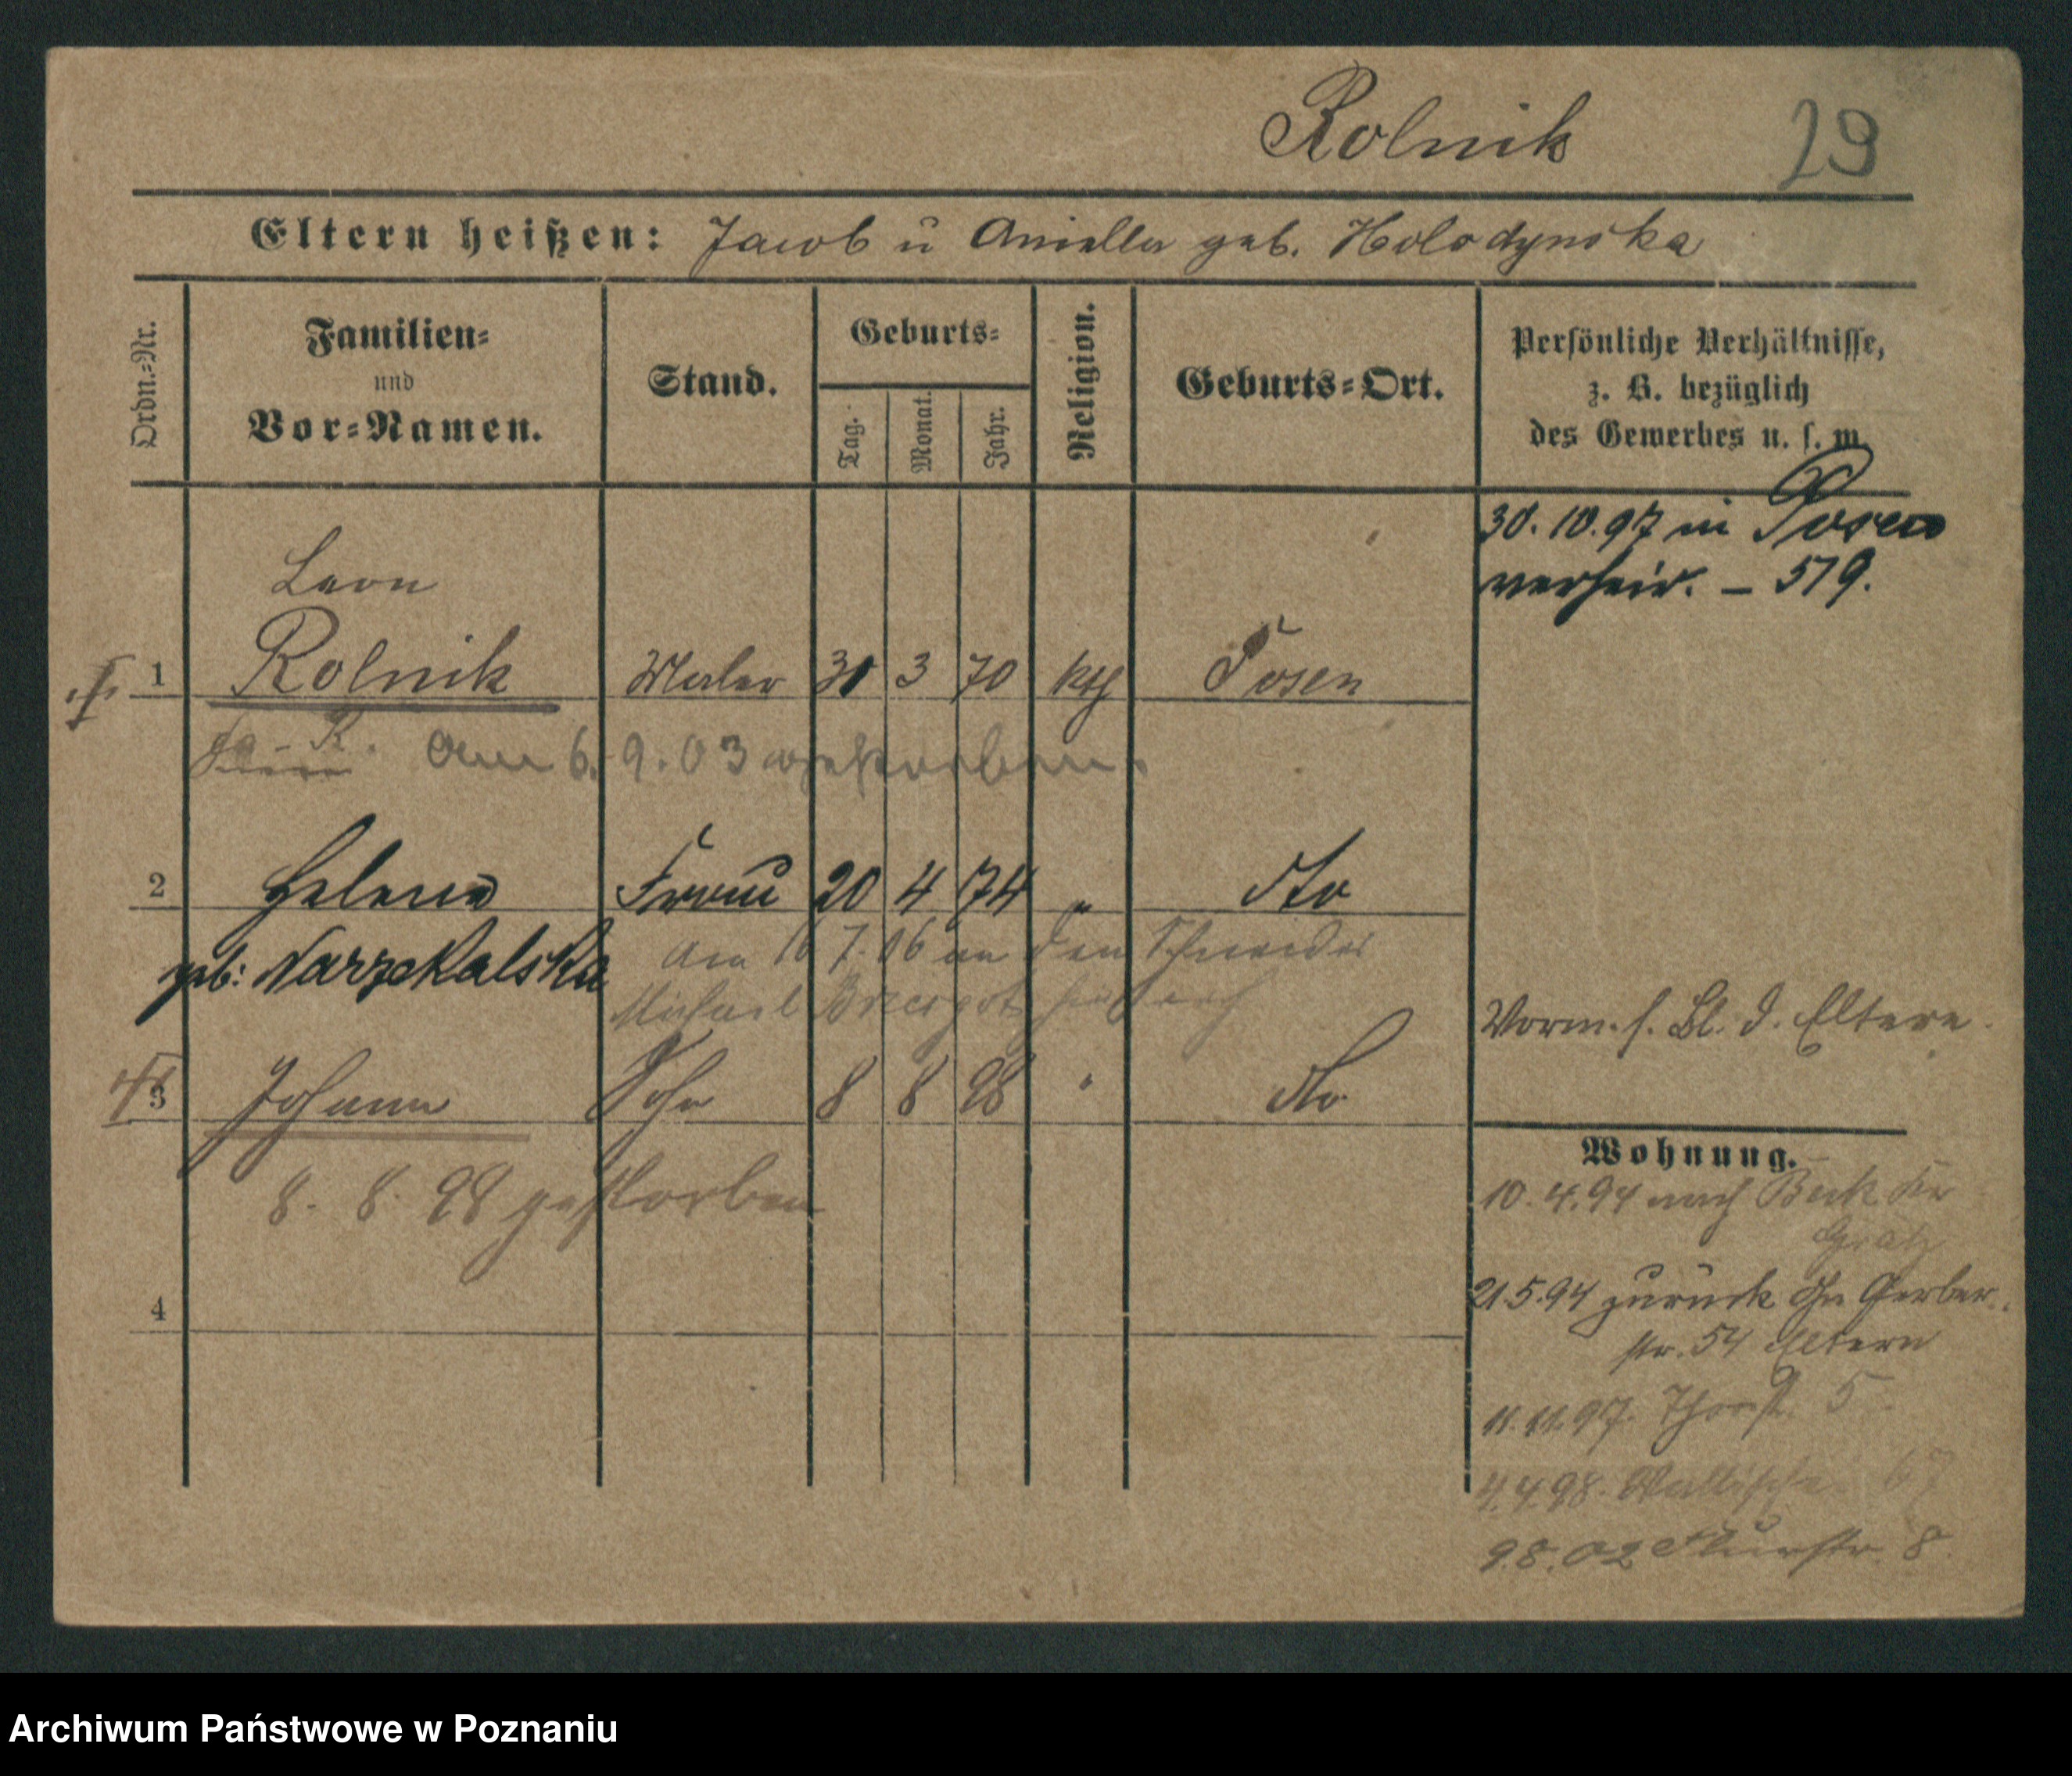 Rolnik 29
Eltern heißen: Jacob u Aniella geb. Holodynska
Ordn.-Nr.
Familien-
und
Vor-Namen.
Stand.
Geburts-
Tag.
Monat.
Jahr.
Religion.
Geburts-Ort.
Persönliche Verhältnisse,
z. B. bezüglich
des Gewerbes u. s. w.
30. 10. 97 in Posen
verheir. – 519.
Leon
1 Rolnik Maler 30 3 70 kth Posen
R. am 6. 9. 03 verstorben.
2 Helena Frau 20 4 74 " dto
geb: Narzekalska
am 16 7. 06 an den Schneider
Michael
Vorm. s. Bl. d. Eltern.
3 Johann Sohn 8 8 98 " dto
8. 8. 98 gestorben
4
Wohnung.
10. 4. 94 nach Buk Kr
Grätz
21.5.94 zurück Gerber-
str. 54 Eltern
11. 11. 97. Thorst. 5
4.4.98. Wallischei 67
9.8.02 Flurstr. 8.
Archiwum Państwowe w Poznaniu